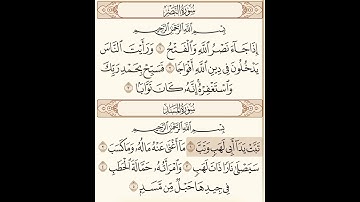 سُورَةُ النَّصْرِ
بِسْمِ اللَّهِ الرَّحْمَٰنِ الرَّحِيمِ
إِذَا جَاءَ نَصْرُ اللَّهِ وَالْفَتْحُ ١ وَرَأَيْتَ النَّاسَ
يَدْخُلُونَ فِي دِينِ اللَّهِ أَفْوَاجًا ٢ فَسَبِّحْ بِحَمْدِ رَبِّكَ
وَاسْتَغْفِرْهُ إِنَّهُ كَانَ تَوَّابًا ٣
سُورَةُ المَسَدِ
بِسْمِ اللَّهِ الرَّحْمَٰنِ الرَّحِيمِ
تَبَّتْ يَدَا أَبِي لَهَبٍ وَتَبَّ ١ مَا أَغْنَىٰ عَنْهُ مَالُهُ وَمَا كَسَبَ ٢
سَيَصْلَىٰ نَارًا ذَاتَ لَهَبٍ ٣ وَامْرَأَتُهُ حَمَّالَةَ الْحَطَبِ ٤
فِي جِيدِهَا حَبْلٌ مِّن مَّسَدٍ ٥